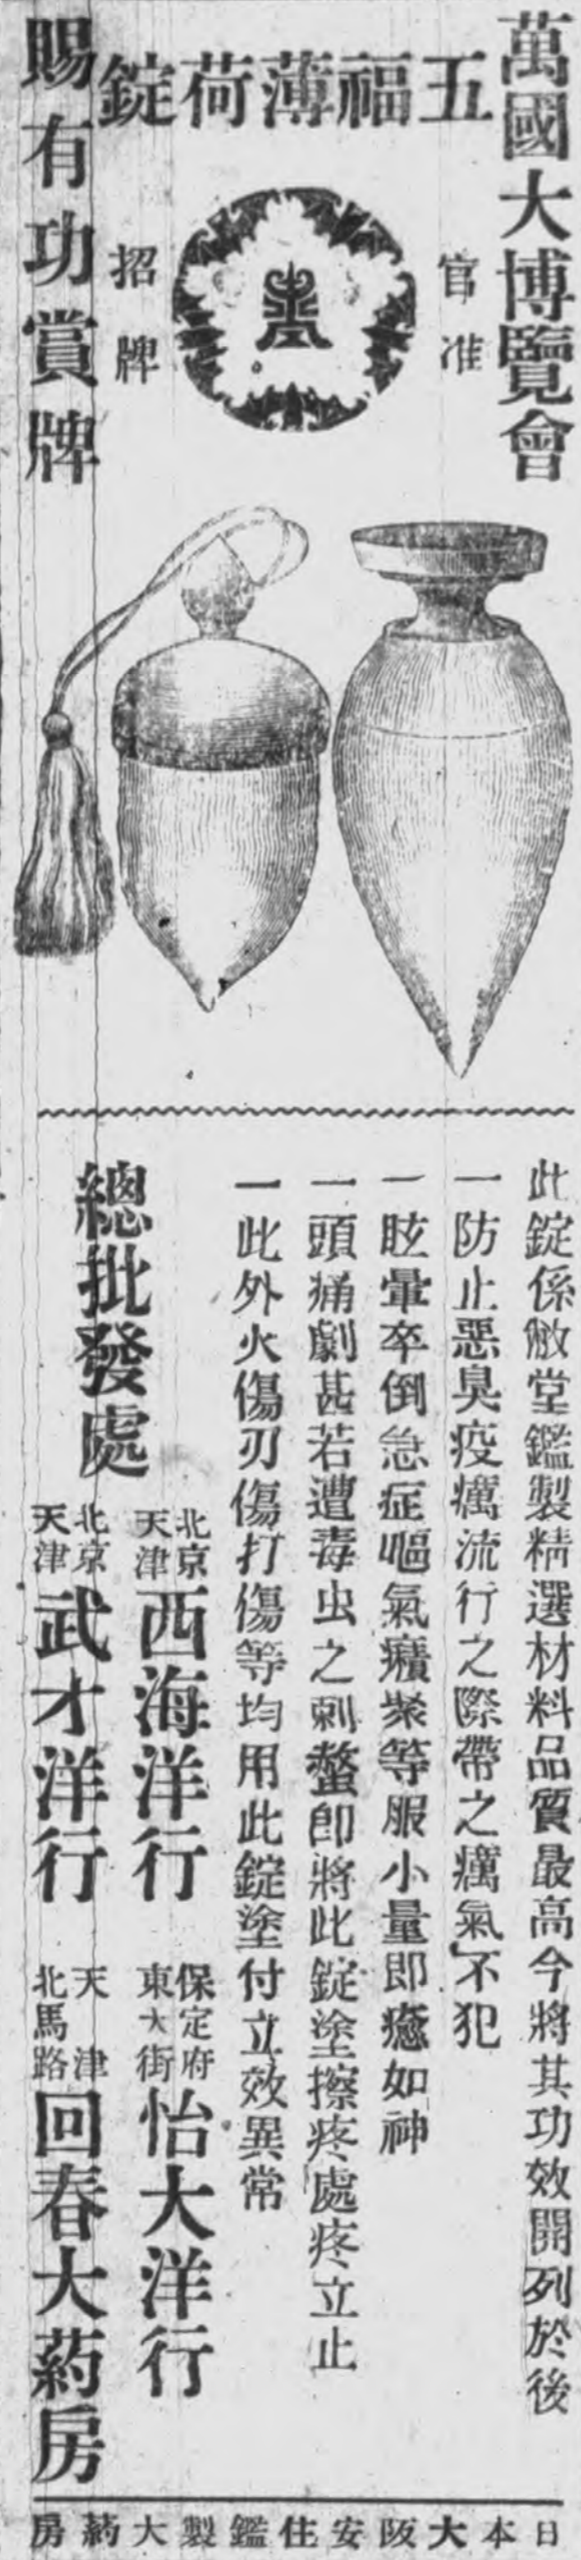 萬國大博覽會
五福薄荷錠
賜有功賞牌
官准
招牌
此錠係敝堂鑑製精選材料品質最高今將其功效開列於後
一防止惡臭疫癘流行之際帶之癘氣不犯
一眩暈卒倒急症嘔氣癪聚等服小量即癒如神
一頭痛劇甚若遭毒虫之刺螫即將此錠塗擦疼處疼立止
一此外火傷刃傷打傷等均用此錠塗付立效異常
總批發處
北京天津西海洋行
保定府東大街怡大洋行
北京天津武才洋行
天津北馬路回春大葯房
日本大阪安住鑑製大葯房